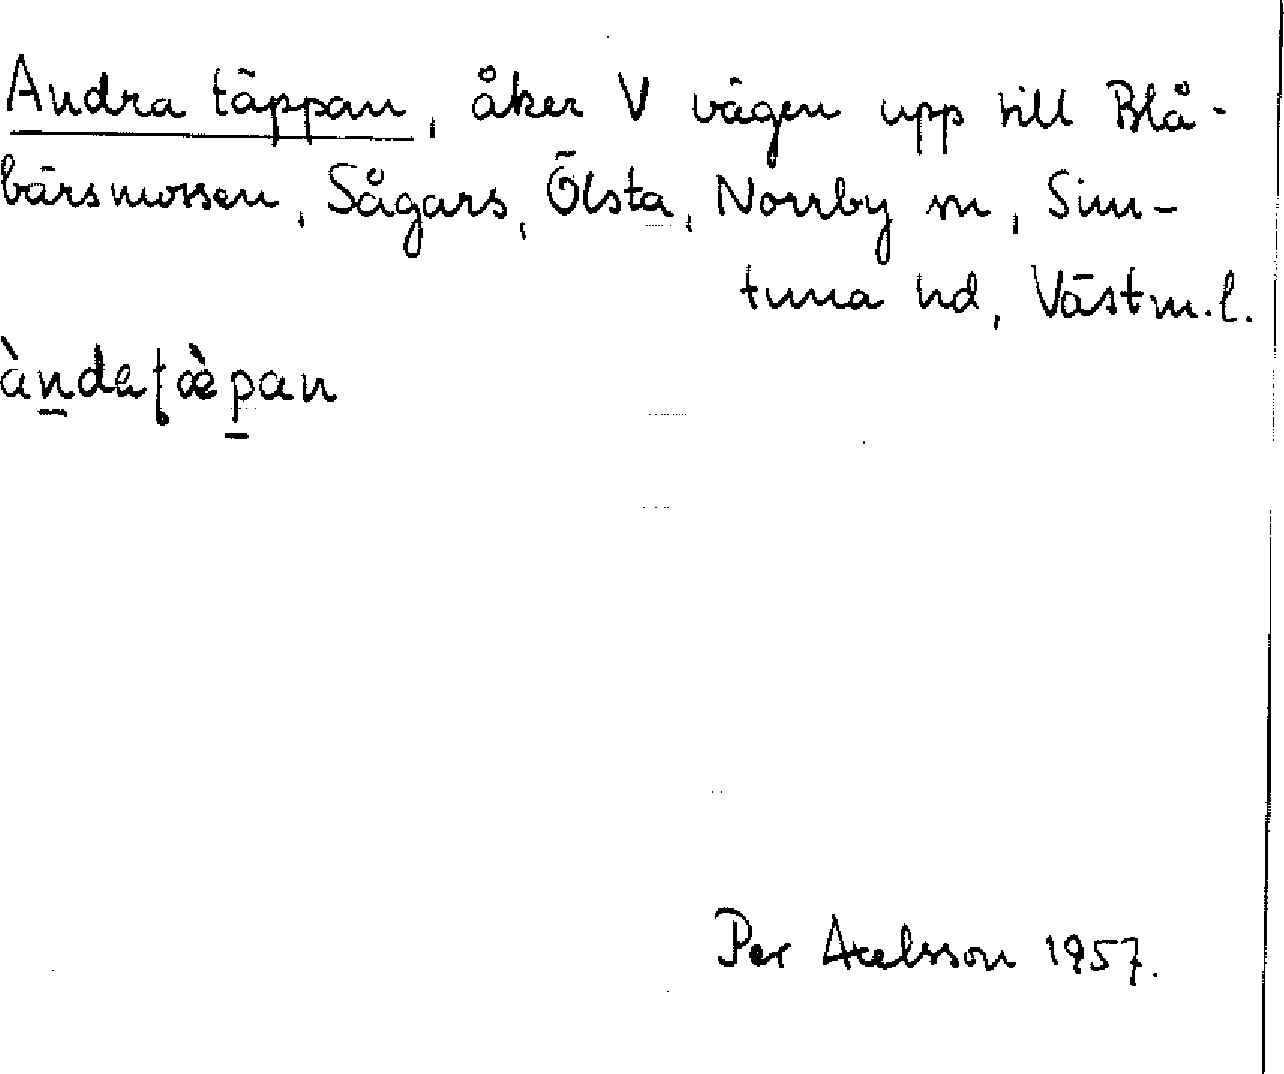 Andra täppan, åker V vägen upp till Blå-
bärsmossen, Sågars, Ölsta, Norrby sn, Sim-
tuna hd, Västm.l.
àn̲daʈæ̀p̲an
Per Axelsson 1957.